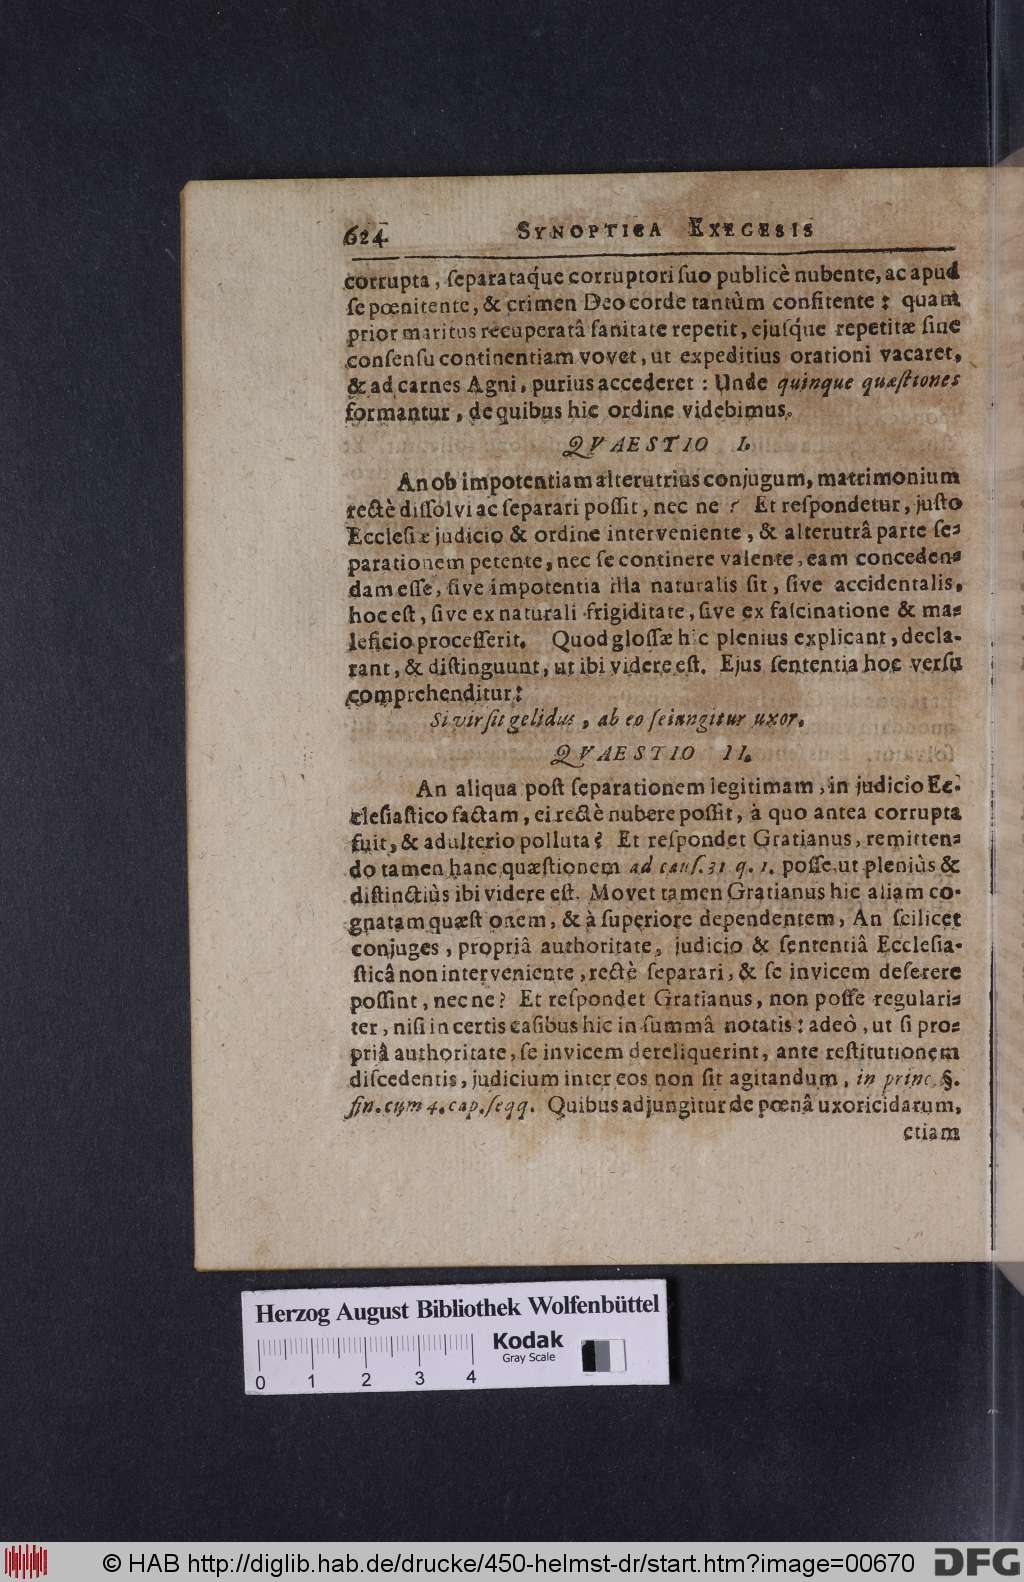 624 SYNOPTICA EXEGESIS
corrupta, ſeparataq́ue corruptori ſuo publicè nubente, ac apud
ſe pœnitente, & crimen Deo corde tantùm confitente: quam
prior maritus recuperatâ ſanitate repetit, ejuſq́ue repetitæ ſine
conſenſu continentiam vovet, ut expeditius orationi vacaret,
& ad carnes Agni, purius accederet: Unde quinque quæſtiones
formantur, de quibus hic ordine videbimus.
QVAESTIO I.
An ob impotentiam alterutrius conjugum, matrimonium
rectè diſſolvi ac ſeparari poſſit, nec ne? Et reſpondetur, juſto
Eccleſiæ judicio & ordine interveniente, & alterutrâ parte ſe-
parationem petente, nec ſe continere valente, eam conceden-
dam eſſe, ſive impotentia illa naturalis ſit, ſive accidentalis,
hoc eſt, ſive ex naturali frigiditate, ſive ex faſcinatione & ma-
leficio proceſſerit. Quod gloſſæ hic plenius explicant, decla-
rant, & diſtinguunt, ut ibi videre eſt. Ejus ſententia hoc verſu
comprehenditur:
Si vir ſit gelidus, ab eo ſeiungitur uxor.
QVAESTIO II.
An aliqua poſt ſeparationem legitimam, in judicio Ec-
cleſiaſtico factam, ei rectè nubere poſſit, à quo antea corrupta
fuit, & adulterio polluta? Et reſpondet Gratianus, remitten-
do tamen hanc quæſtionem ad cauſ. 31 q. 1. poſſe, ut pleniùs &
diſtinctiùs ibi videre eſt. Movet tamen Gratianus hic aliam co-
gnatam quæſt onem, & à ſuperiore dependentem, An ſcilicet
conjuges, propriâ authoritate, judicio & ſententiâ Eccleſia-
ſticâ non interveniente, rectè ſeparari, & ſe invicem deſerere
poſſint, nec ne? Et reſpondet Gratianus, non poſſe regulari-
ter, niſi in certis caſibus hic in ſummâ notatis: adeò, ut ſi pro-
priâ authoritate, ſe invicem dereliquerint, ante reſtitutionem
diſcedentis, judicium inter eos non ſit agitandum, in princ. §.
fin. cum 4. cap. ſeqq. Quibus adjungitur de pœnâ uxoricidarum,
etiam
Herzog August Bibliothek Wolfenbüttel
Kodak
Gray Scale
0 1 2 3 4
© HAB http://diglib.hab.de/drucke/450-helmst-dr/start.htm?image=00670 DFG